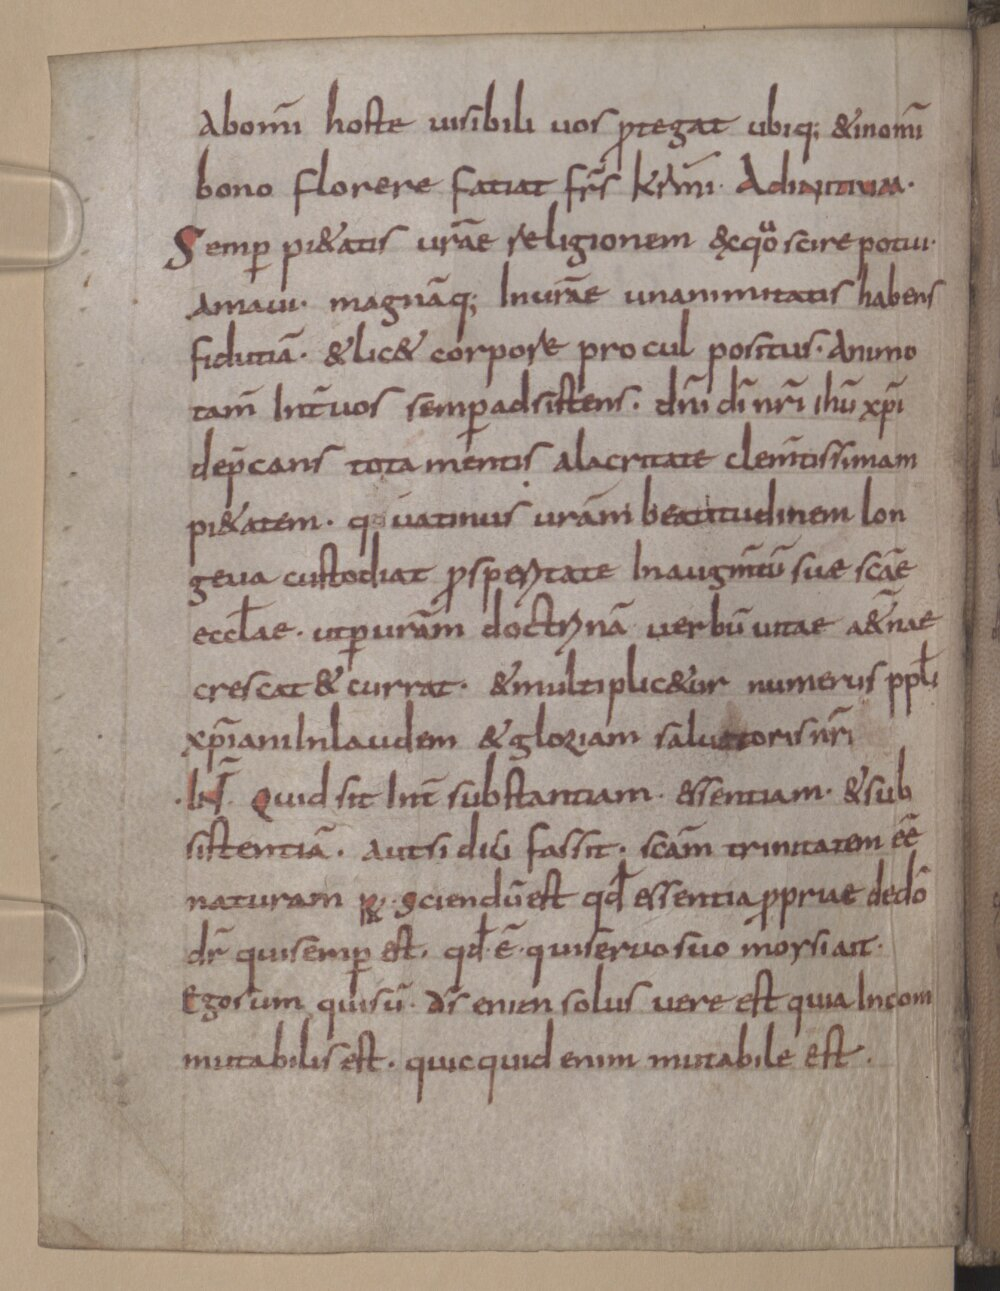 abom̄i hoste uisibili uos ꝓtegat ubiq; &inom̄i
bono florere fatiat fr̄s kr̄mi. Adinitium.
Semꝑ pi&atis ur̄ae religionem &ęquo scire potui.
amaui. magnāq; Inur̄ae unanimitatis habens
fidutiā. &lic& corpore procul positus. animo
tam̄ Int̄uos semꝑadsistens. dn̄i dī nr̄i ihū xp̄i
dep̄cans tota mentis alacritate clem̄tissimam
pi&atem. quatinus ur̄am beatitudinem lon
geua custodiat ꝓsperitate Inaugm̄tū sue sc̄ae
eccl̄ae. utꝑur̄am doctrinā uerbū uitae a&̄nae
crescat & currat. &multiplic&ur numerus ppl̄i
xp̄iani Inlaudem &gloriam saluatoris nr̄i
Quid sit Int̄ substantiam. essentiam. &sub
sistentiā. autsi dici fassit. sc̄am trinitatem eē
naturam sciendūest qd̄ essentia ꝓprie dedō
dr̄ quisemꝑ est. qd̄.ē. quiseruosuo moysi ait.
Egosum quisū. ds̄ enim solus uere est quia Incom
mutabilis est. quicquid enim mutabile est.